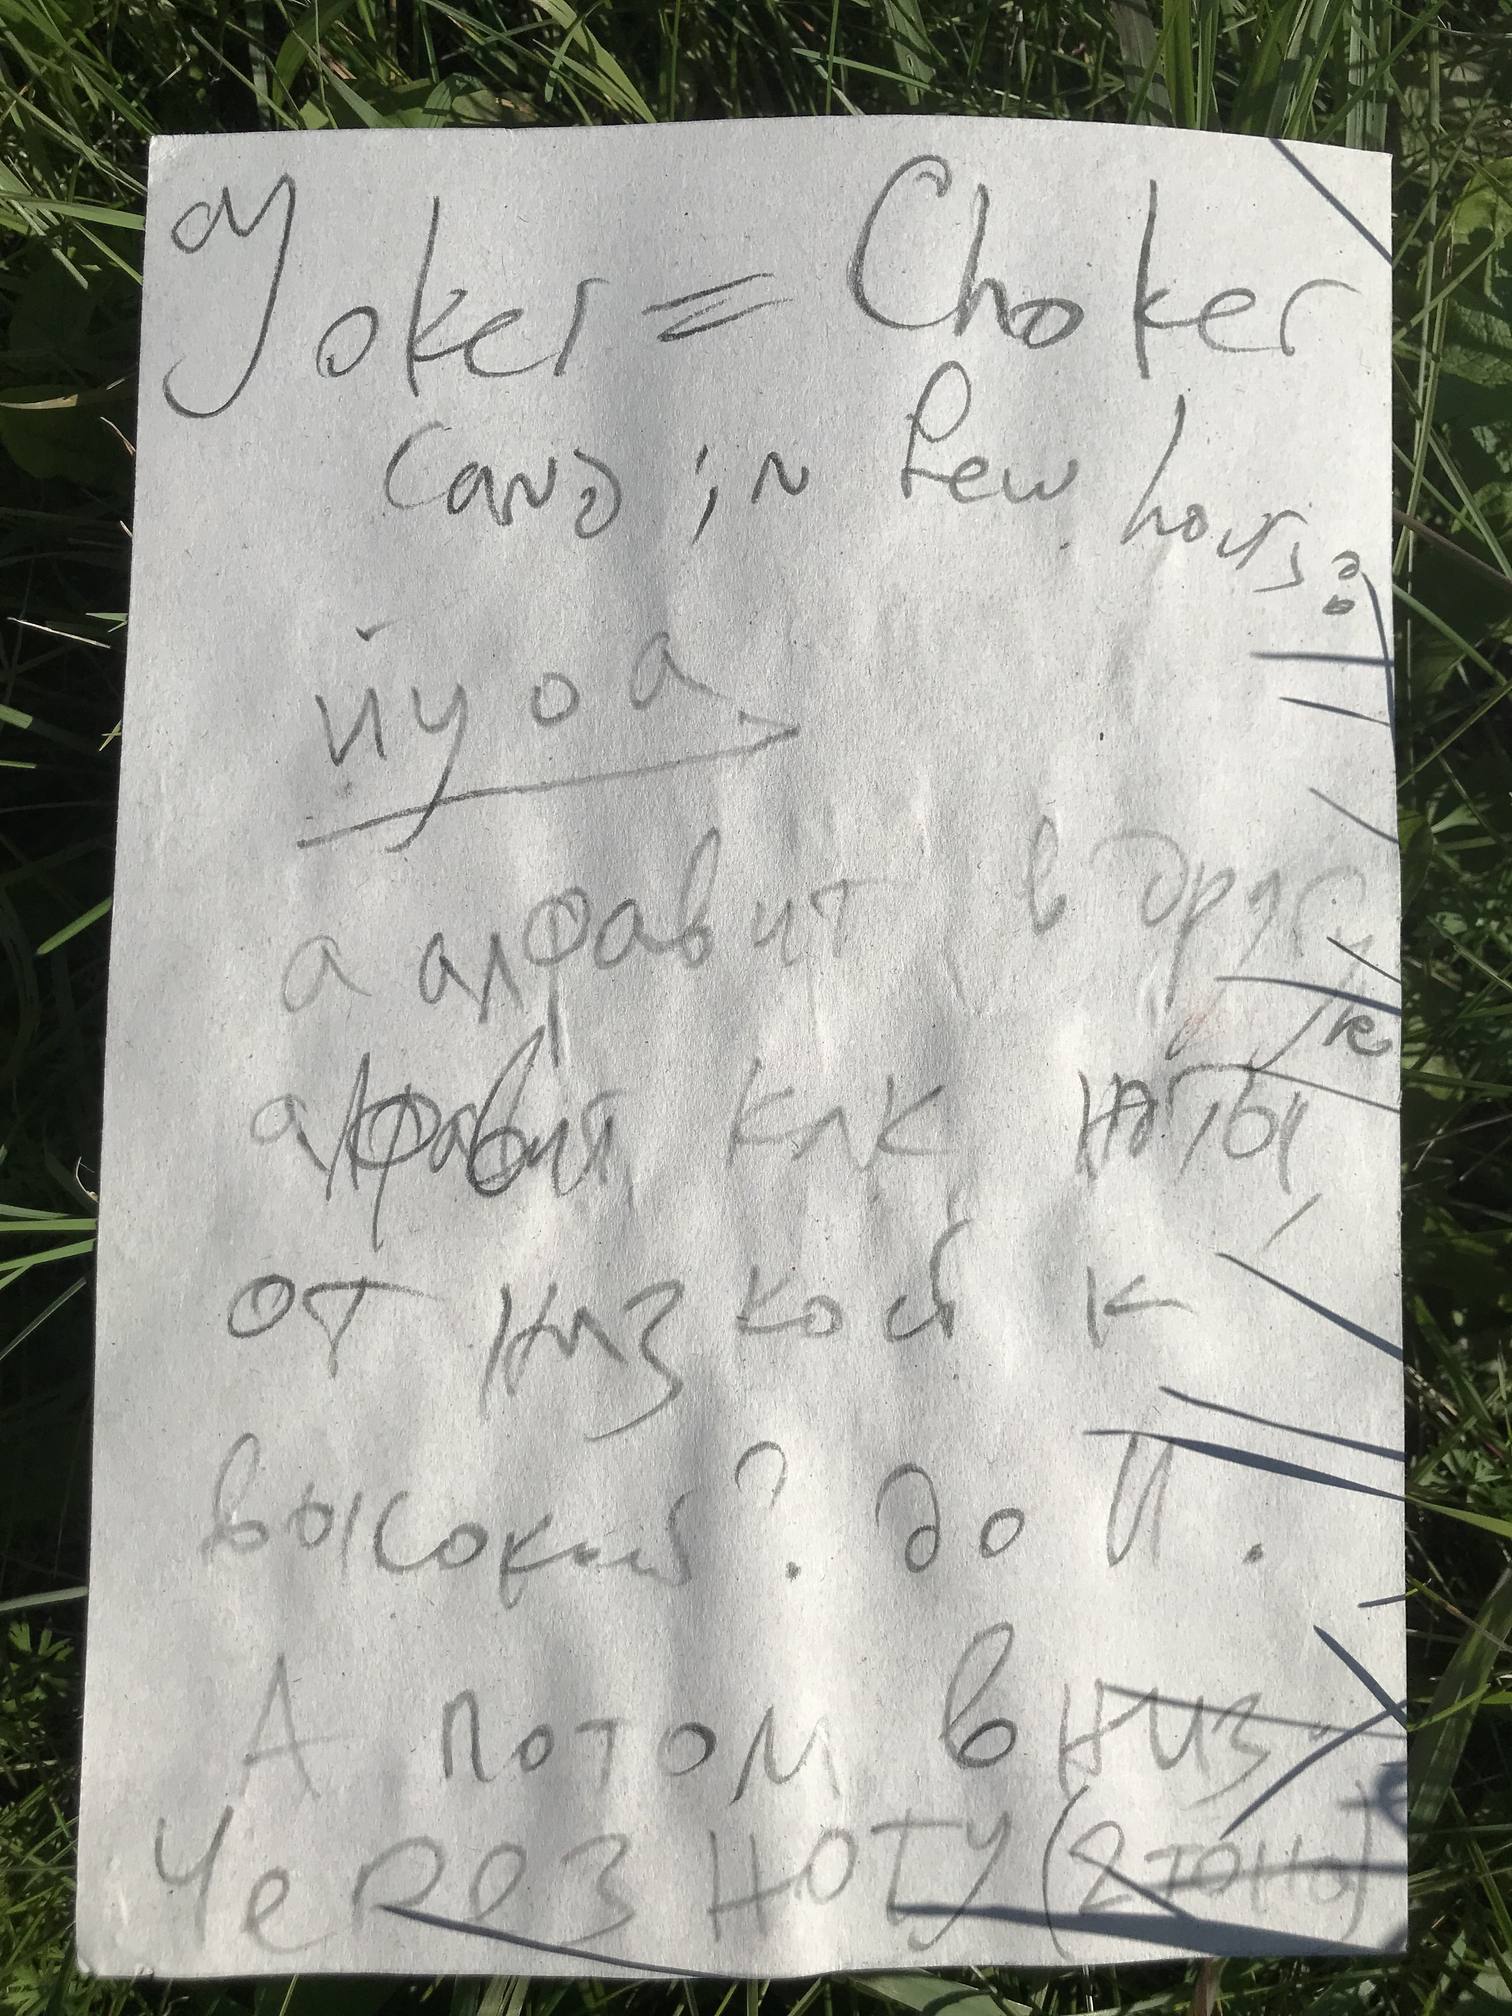 Joker = Choker
Cand in few hours?
йуоа
а алфавит в друге
алфавит как ноты
от низкой к
высокой? до И.
А потом вниз
через ноту (2 тона)